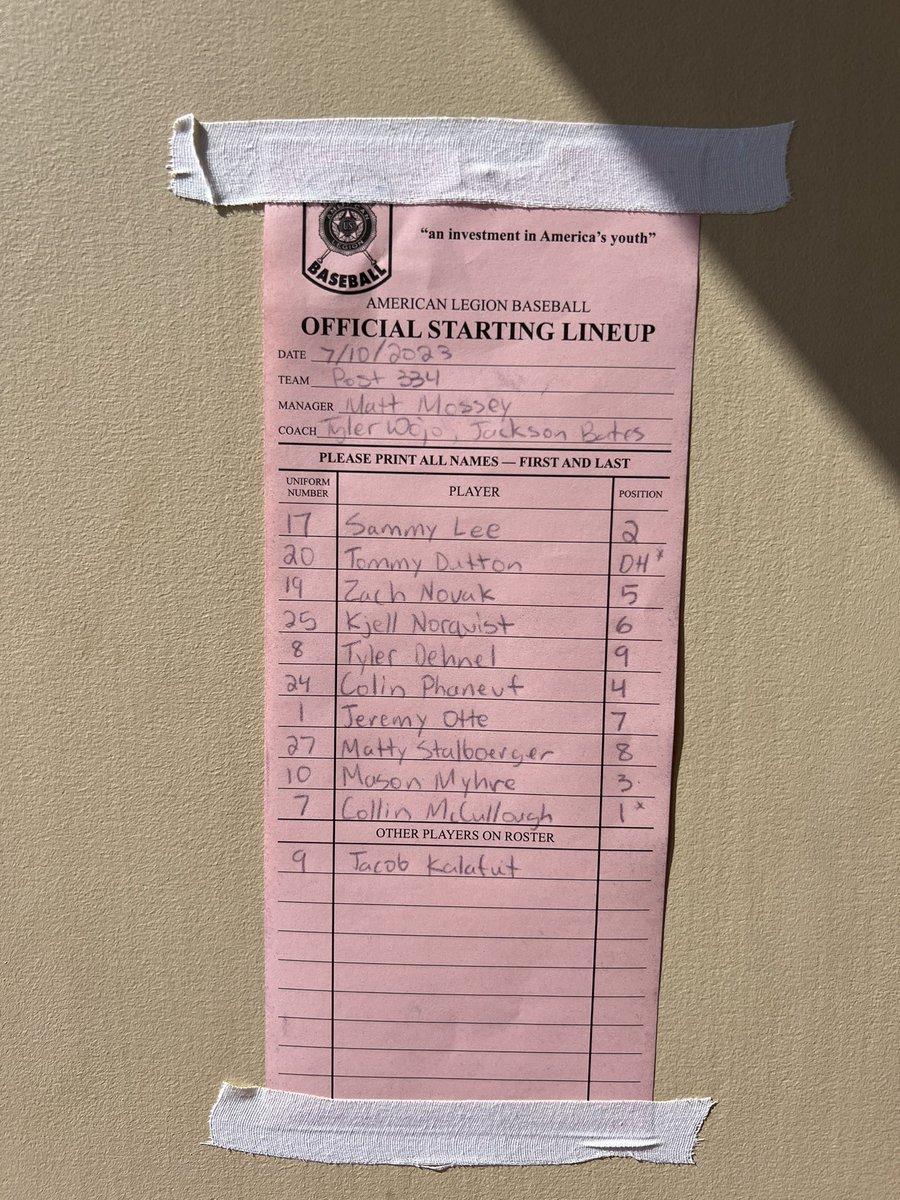 AMERICAN
U.S.
LEGION
BASEBALL
“an investment in America’s youth”
AMERICAN LEGION BASEBALL
OFFICIAL STARTING LINEUP
DATE 7/10/2023
TEAM Post 334
MANAGER Matt Mossey
COACH Tyler Wojo, Jackson Bates
PLEASE PRINT ALL NAMES — FIRST AND LAST
UNIFORM NUMBER PLAYER POSITION
17 Sammy Lee 2
20 Tommy Dutton DH*
19 Zach Novak 5
25 Kjell Norquist 6
8 Tyler Dehnel 9
24 Colin Phaneuf 4
1 Jeremy Otte 7
27 Matty Stalboerger 8
10 Mason Myhre 3
7 Collin McCullough 1*
OTHER PLAYERS ON ROSTER
9 Jacob Kalafut